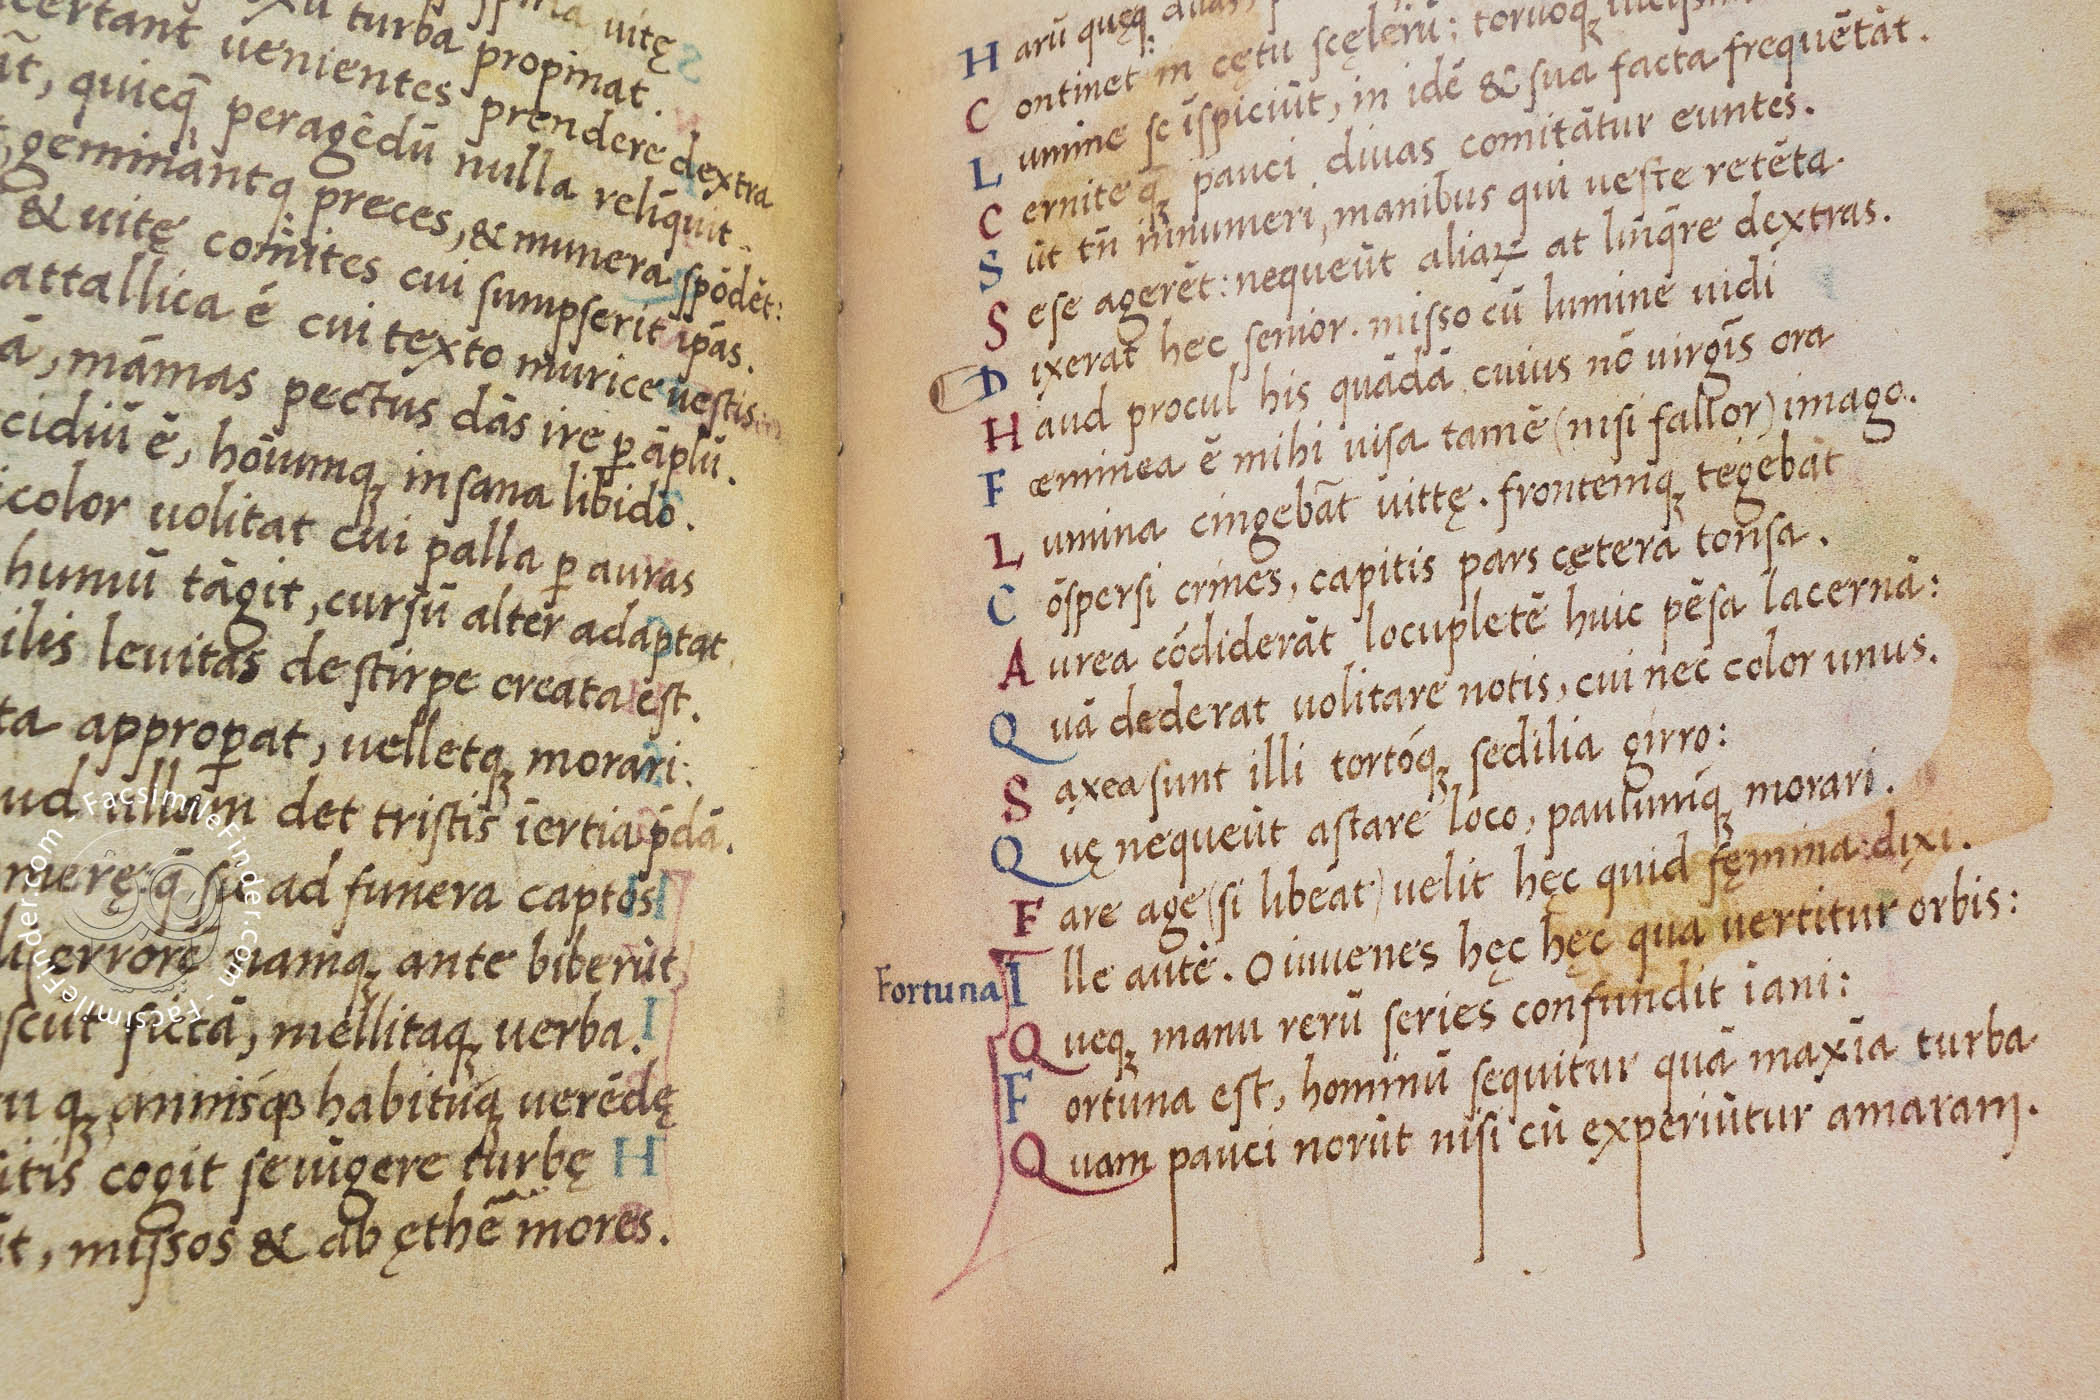 vitę
turba propinat.
certant uenientes prendere dextra
quicq̄ peragēdū nulla relīquit
geminantq; preces, & munera spōdēt:
& uitę comites cui sumpserit ipās.
attallica ē cui texto murice uestis
ā, māmas pectus dās ire p āplū.
cidiū ē, hōiumq; insana libido.
color uolitat cui palla p auras
humū tāgit, cursū alter adaptat
ilis leuitas de stirpe creata est.
ta appropat, uelletq; morari:
ud ullum det tristis īertia p̄dā.
merę: q̄ sic ad funera captos
errorę namq; ante biberūt,
scut sictā, mellitaq; uerba.
annisq; habituq; uerēdę
itis cogit seuigere turbę
t, missos & ab ęthē mores.
H arū quęq;
C ontinet in cętu scęlerū; toruoq;
L umine se īspiciūt, in idē & sua facta frequētāt.
C erniteq; pauci diuas comitātur euntes.
S ūt tn̄ innumeri, manibus qui ueste retēta
S ese agerēt: nequeūt aliaꝝ at līnq̄re dextras.
D ixerat hec senior. misso cū lumine uidi
H aud procul his quādā cuius nō uirgīs ora
F œminea ē mihi uisa tamē (nisi fallor) imago.
L umina cingebāt uittę. frontemq; tegebāt
C ōspersi crines, capitis pars cętera tonsa.
A urea cōdiderāt locupletē huic pēsa lacernā:
Q uā dederat uolitare notis, cui nec color unus.
S axea sunt illi tortoq; sedilia girro:
Q uę nequeūt astare loco, paulumq; morari.
F are age (si libeat) uelit hęc quid fęmina: dixi.
Fortuna
I lle autē. O iuuenes hęc hęc qua vertitur orbis:
Q ueq; manu rerū series confundit īani:
F ortuna est, hominū sequitur quā maxīa turba
Q uam pauci norūt nisi cū experiūtur amaram.
FacsimileFinder.com - FacsimileFinder.com -